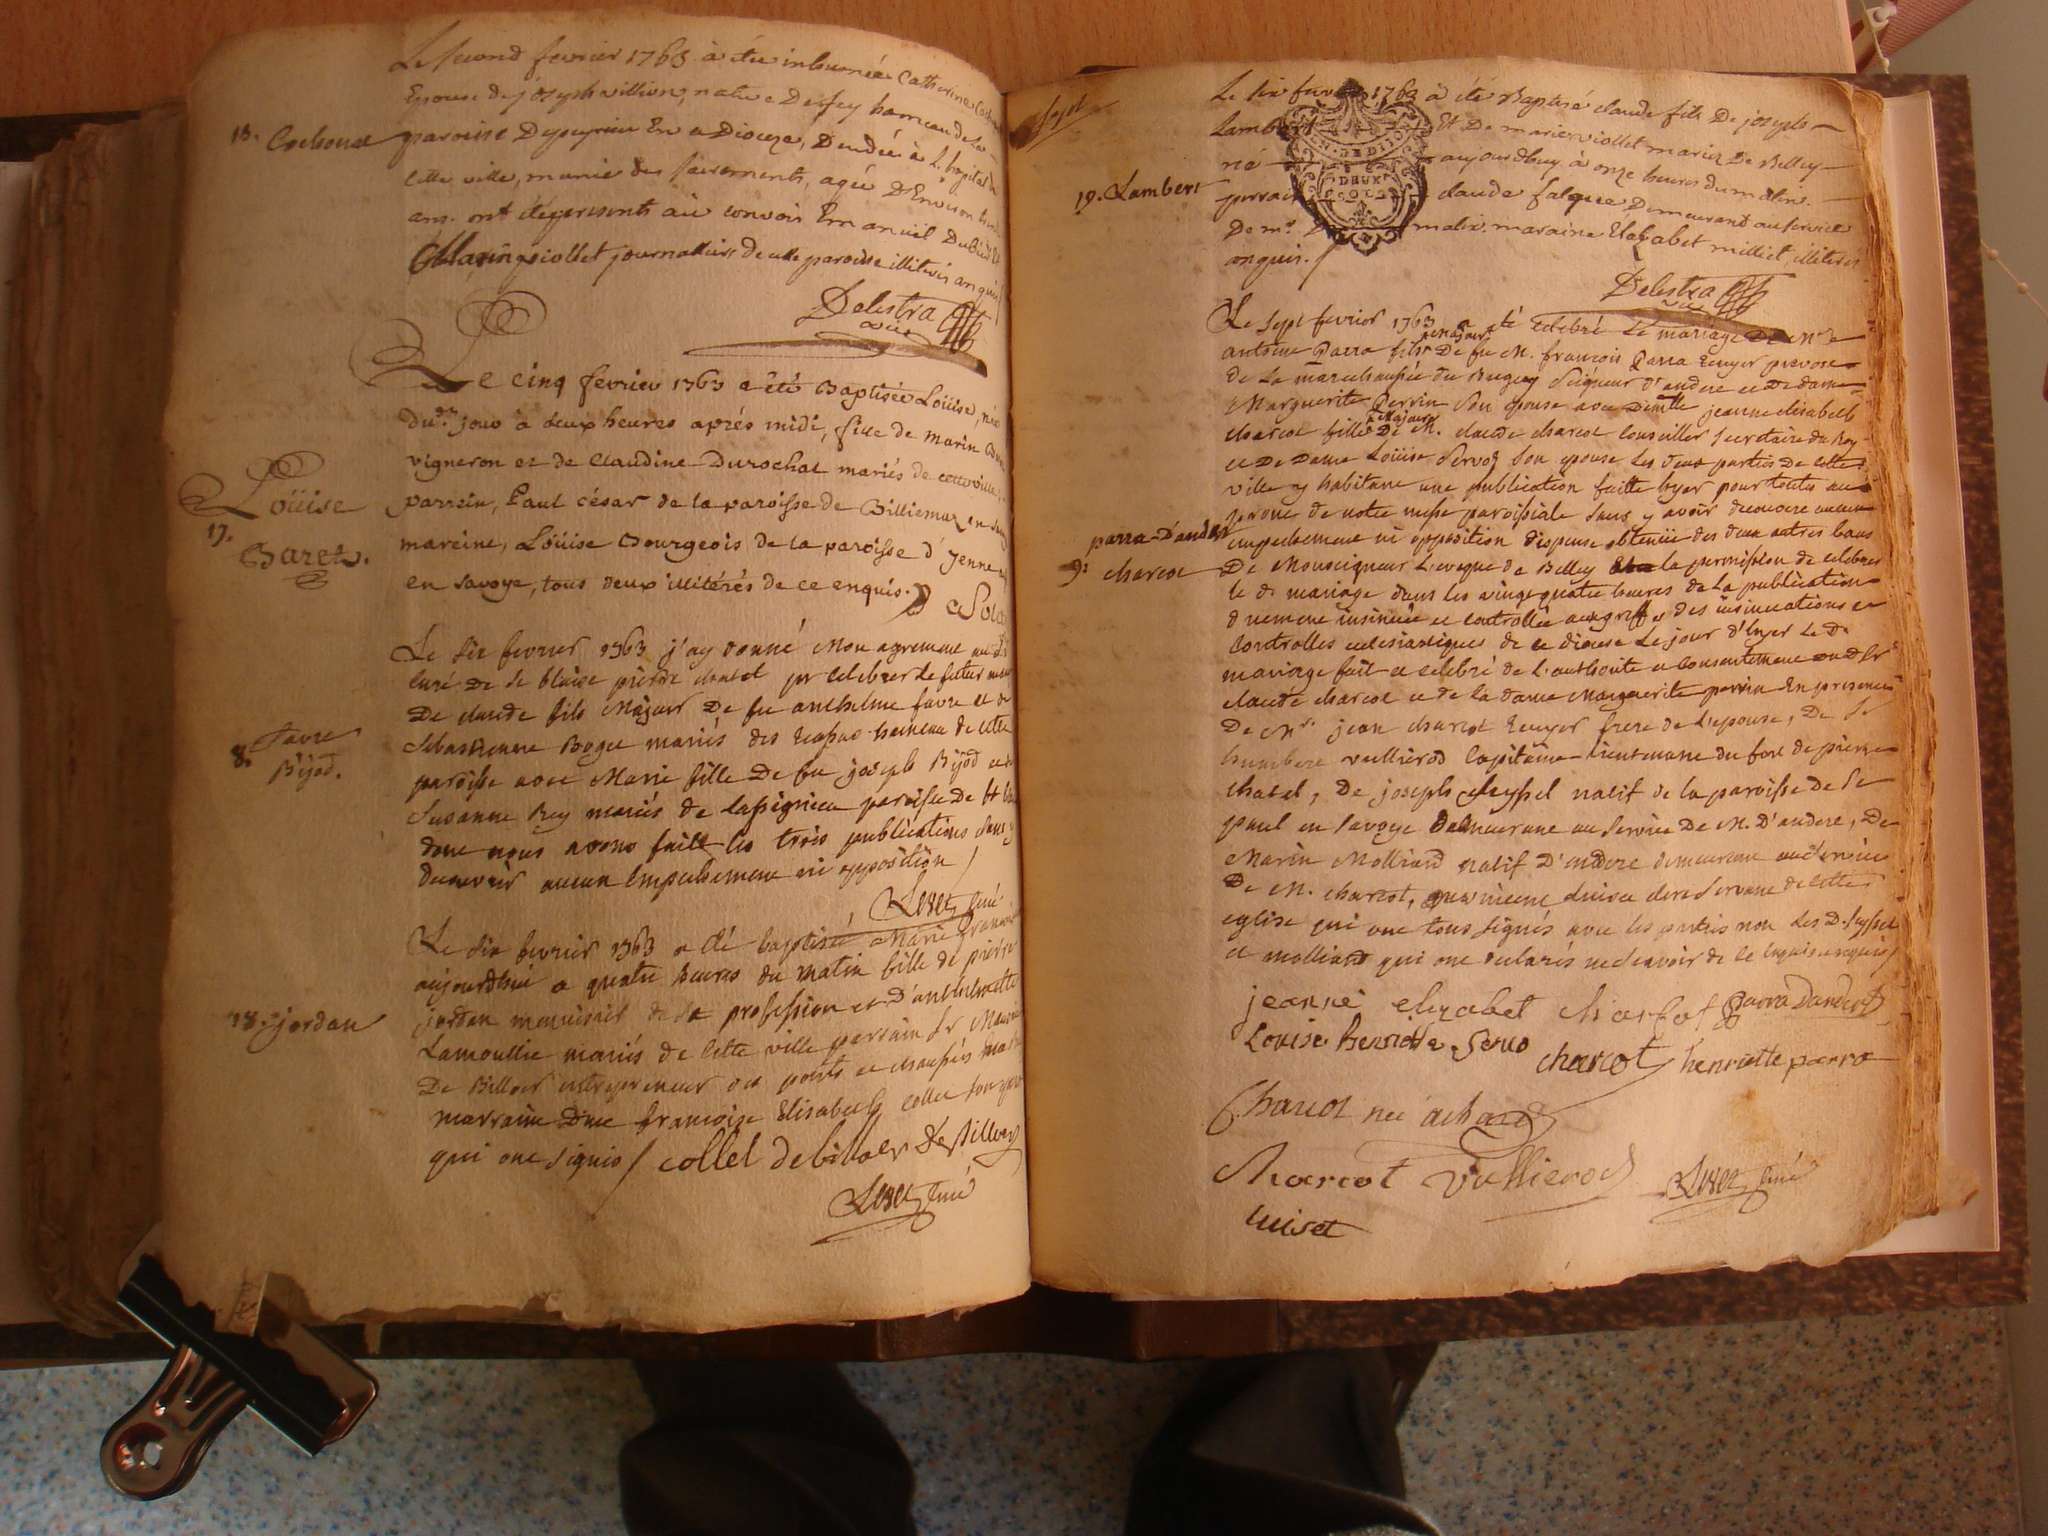 Le second fevrier 1763 à étée inhumée Catherine
Epouse de joseph villion, native De fey hameau de la
13. Cochonat
paroisse De peyrieu En ce Dioceze, Decedée à L'hopital de
cette ville, munie des sacrements, agée D'Environ
ans. ont étéz presents au convoit Emanuel Dubien Et
Marin viollet journalliers de cette paroisse illiteréz anquis
Delestra vic.
Le cinq fevrier 1763 a été Baptisée Loüise, née
du.d. jour à deux heures aprés midi, fille de marin
vigneron et de Claudine Durochat mariés de cette ville,
Loüise
17.
Baret.
parrein, Paul césar de la paroisse de Billiemaz en
mareine, Loüise Bourgeois de la paroisse d'Yenne
en Savoye, tous deux illitérés de ce enquis.
Le six fevrier 1763 j'ay donné Mon agrement au Sr
curé de St blaise pierre chatel pr celebrer le futur
De claude fils Majeur De fu anthelme favre et de
8. favre
Bijod.
Sebastienne Bogee mariés des hameau de cette
paroisse avec Marie fille De fu joseph Bijod et de
Susanne Rey mariés de Lassignieu paroisse de St
dont nous avons faitt les trois publications sans y
decouvrir aucun Empechement ni opposition /
curé
Le six fevrier 1763 a eté baptisée Marie
aujourdhui a quatre heures du matin fille de pierre
18. jordan
jordan menuisier de sa profession et d'anthelmette
Lamoullie mariés de cette ville parrain Sr
De Billoer entrepreneur des ponts et chaussées
marraine Dme francoise Elisabeth collet son
qui ont signés / collet de billoer De billoer
curé
Sept
Le six fevrier 1763 à été Baptisé claude fils De joseph
Lambert Et De marie viollet mariez De Belley
né aujourdhuy à onze heures du matin.
19. Lambert
parrain claude falque Demeurant au service
De mr. maraine Elizabet milliet illiteres
anquis. /
DEUX
SOLS
Delestra vic.
Le Sept fevrier 1763 a eté celebré Le mariage De Mr
antoine Parra fils majeur De fu M. francois Parra Ecuyer prevost
de La marechaussée du Bugey Seigneur d'andert et De dame
Marguerite Perrin Son epouse avec Demlle jeanne elisabeth
charcot fille Majeure De M. claude charcot Conseiller secretaire du Roy
et De Dame Loüise Servoz Son epouse Les deux parties de cette
ville y habitant une publication faitte hyer pour toutes au
prone de notre messe paroissiale Sans y avoir decouvert aucun
parra-D'andert
9. charcot
empechement ni opposition dispense obtenüe des deux autres bans
De Monseigneur L'eveque de Belley la permission de celebrer
le d. mariage dans les vingt quatre heures de La publication
duement insinuée et controllée au greffe des insinuations et
Controlles eclesiastiques de ce diocese Le jour d'hyer Le D.
mariage fait et celebré de L'authorité et Consentement du D. Sr
claude charcot et de la dame Marguerite perrin En presence
De Mr. jean charcot Ecuyer frere de L'epouse, De Sr
humbert vullierod Capitaine Lieutenant du fort de pierre
chatel, De joseph Seyssel natif de la paroisse de St
paul en Savoye Demeurant au Service De M. D'andert, De
Marin Molliard natif D'andert demeurant au service
De M. charcot, Luiset clerc Servant de cette
eglise qui ont tous signés avec les parties non Les D. seyssel
et molliard qui ont declarés ne scavoir de ce enquis /
jeanne elizabet Charcot parra Dandert
Louise henriette Servo
charcot henriette parra
Charcot née achard
Charcot Vullierod curé
Luiset